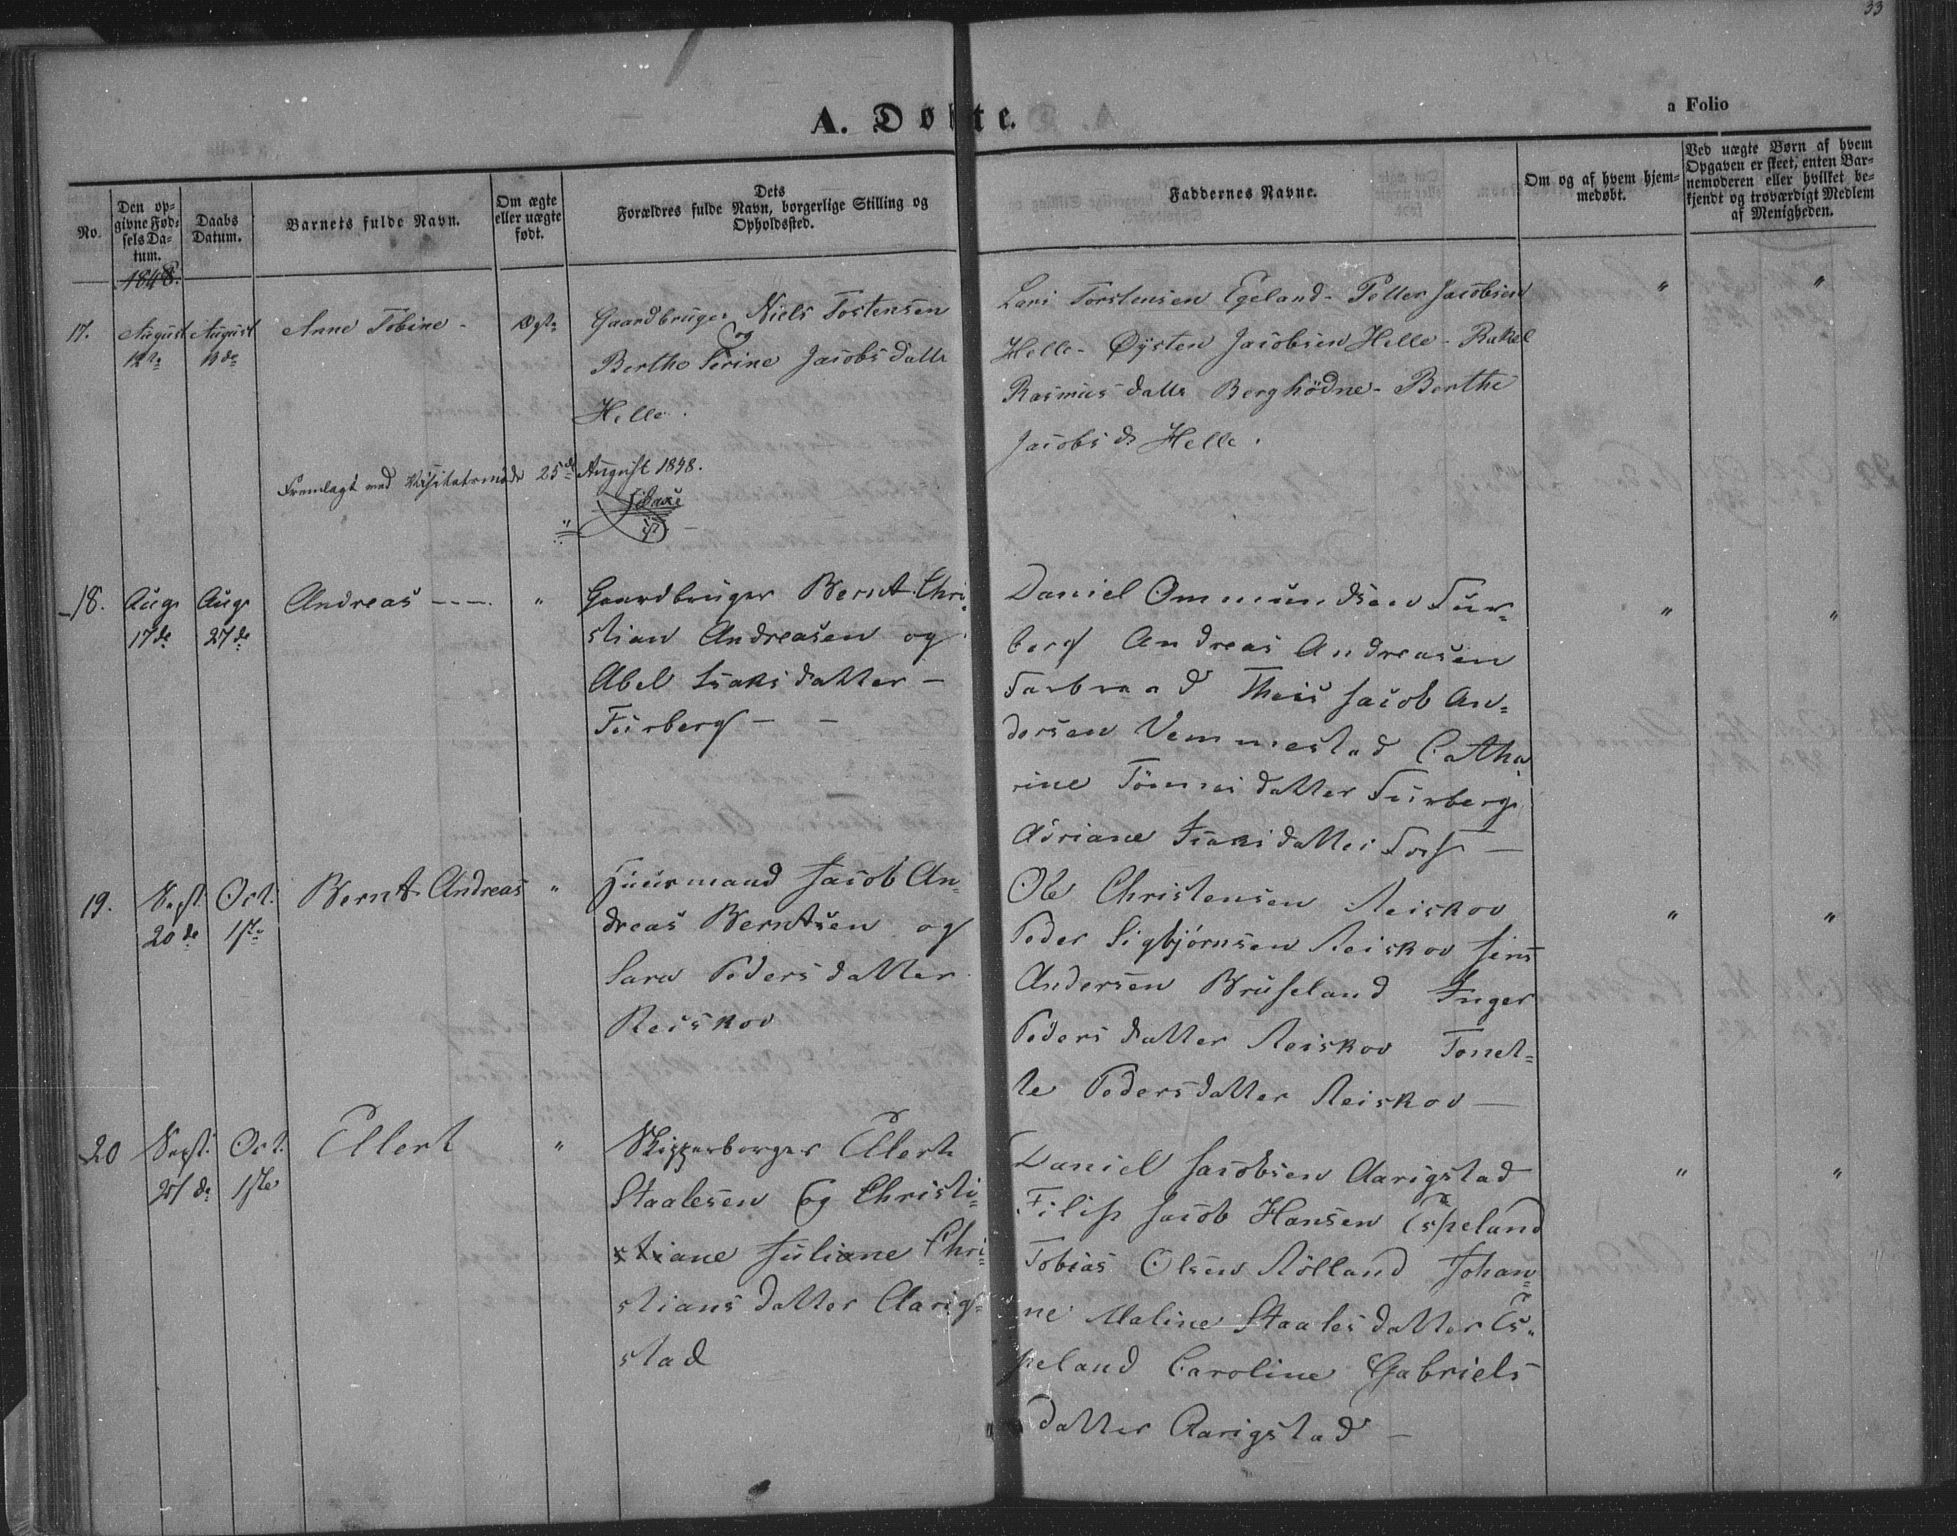 33
A. Døbte.
a Folio
No.
Den op-
givne Fød-
sels Da-
tum.
Daabs
Datum.
Barnets fulde Navn.
Om ægte
eller uægte
født.
Dets
Forældres fulde Navn, borgerlige Stilling og
Opholdssted.
Faddernes Navne.
Om og af hvem hjem-
medøbt.
Ved uægte Børn af hvem
Opgaven er skeet, enten Bar-
nemoderen eller hvilket be-
kjendt og troværdigt Medlem
af Menigheden.
1848.
17.
August
12te
August
Anne Tobine -
Ægte
Gaardbruger Niels Tostensen
og
Berthe Serine Jacobsdatte
Helle.
Lars Torstensen Egeland - Petter Jacobsen
Helle - Øysten Jacobsen Helle - Rakel
Rasmusdatte Berghödne - Berthe
Jacobsd. Helle.
"
"
Fremlagt ved Visitatsmøde 25de August 1848.
18.
Aug.
17de
Aug.
27de
Andreas - - -
"
Gaardbruger Bernt Chri-
stian Andreasen og
Abel Isaksdatter -
Furberg - -
Daniel Ommundsen Fur-
berg Andreas Andreasen
Theis Jacob An-
dersen Vemmestad Catha
rine Tönnesdatter Furberg
Adriane Isaksdatter Fosf -
"
"
19.
Sept.
20de
Oct.
1ste
Bernt Andreas
"
Huusmand Jacob An-
dreas Berntsen og
Sara Pedersdatter
Reiskov
Ole Christensen Reiskov
Peder Sigbjørnsen Reiskov Jens
Andersen Bruseland Inger
Pedersdatter Reiskov Tonet-
te Pedersdatter Reiskov -
"
"
20
Sept.
21de
Oct.
1ste
Ellert
"
Skipperborger Ellert
Staalesen Og Christi-
stiane Juliane Chri-
stiansdatter Aarig-
stad
Daniel Jacobsen Aarigstad
Filip Jacob Hansen Espeland
Tobias Olsen Rölland Johan-
ne Maline Staalesdatter Es-
peland Caroline Gabriels
datter Aarigstad -
"
"